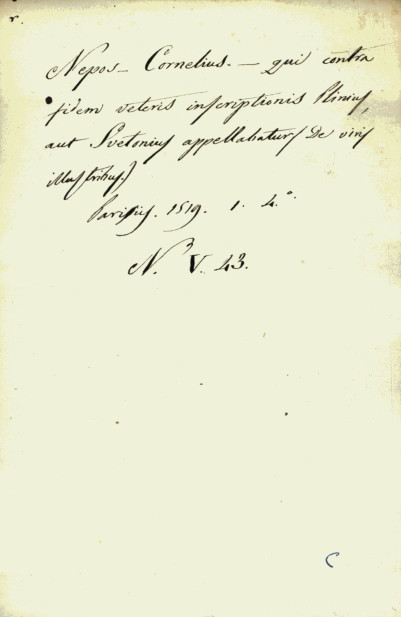 r.
Nepos – Cornelius. – qui contra
fidem veteris inscriptionis Plinius,
aut Svetonius appellabatur (De viris
illustribus)
Parisiis. 1519. 1. 4.°
N. V. 43.
C